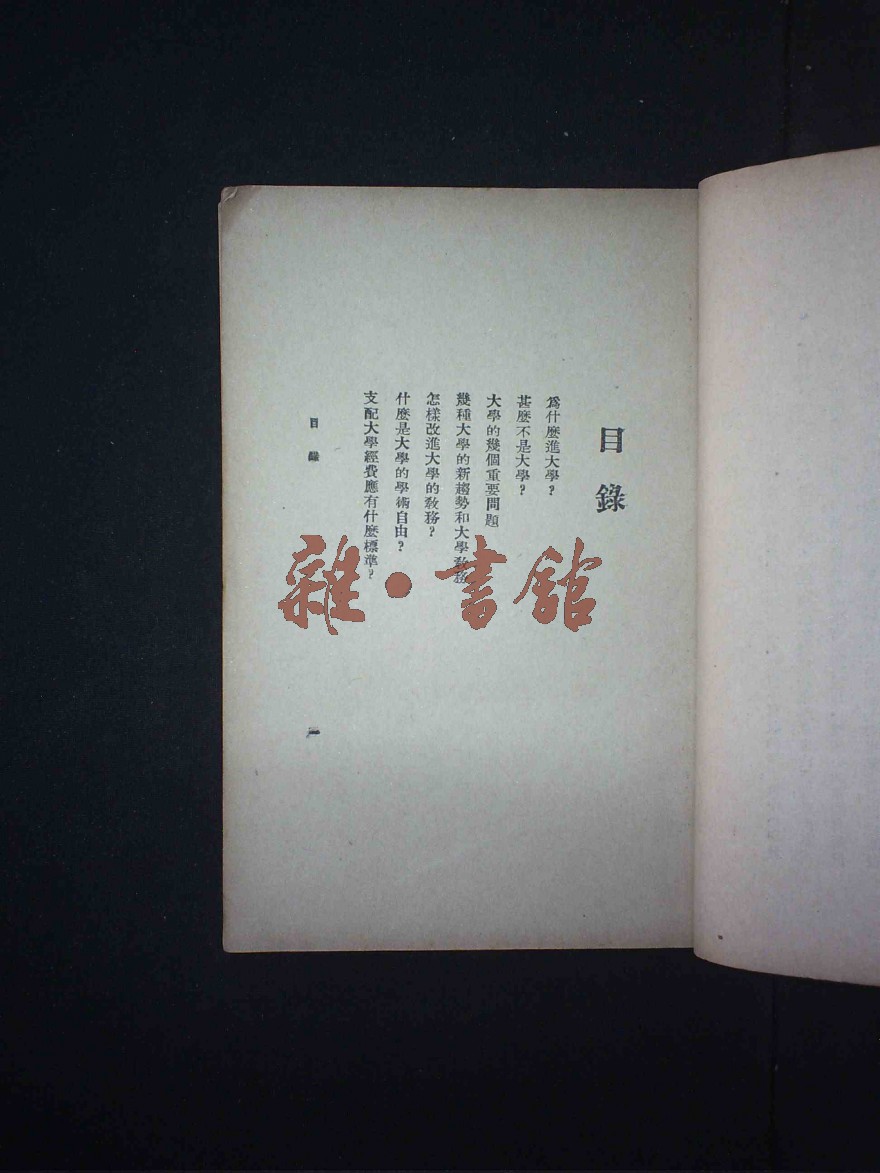 目錄
爲什麼進大學？
甚麼不是大學？
大學的幾個重要問題
幾種大學的新趨勢和大學教務
怎樣改進大學的教務？
什麼是大學的學術自由？
支配大學經費應有什麼標準？
目錄
一
雜·書館